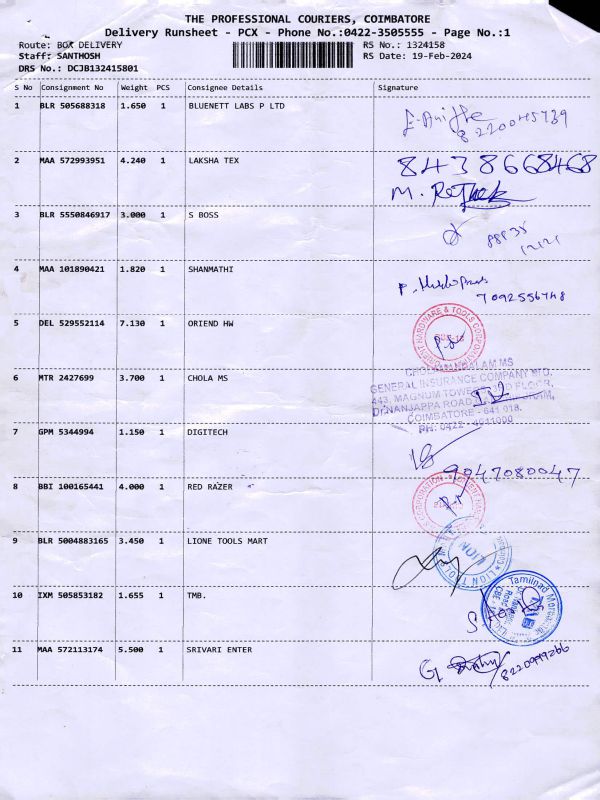 THE PROFESSIONAL COURIERS, COIMBATORE
Delivery Runsheet - PCX - Phone No.:0422-3505555 - Page No.:1
Route: BOX DELIVERY RS No.: 1324158
Staff: SANTHOSH RS Date: 19-Feb-2024
DRS No.: DCJB132415801
S No Consignment No Weight PCS Consignee Details Signature
1 BLR 505688318 1.650 1 BLUENETT LABS P LTD
8220045739
2 MAA 572993951 4.240 1 LAKSHA TEX 8438668468
M.
3 BLR 5550846917 3.000 1 S BOSS
4 MAA 101890421 1.820 1 SHANMATHI
7092556748
5 DEL 529552114 7.130 1 ORIEND HW
ORIENT HARDWARE & TOOLS CORPORATION
6 MTR 2427699 3.700 1 CHOLA MS
CHOLAMANDALAM MS
GENERAL INSURANCE COMPANY LTD.
443, MAGNUM TOWERS, 3RD FLOOR,
Dr.NANJAPPA ROAD,
COIMBATORE - 641 018.
PH: 0422 - 4511000
7 GPM 5344994 1.150 1 DIGITECH
9047080047
8 BBI 100165441 4.000 1 RED RAZER
9 BLR 5004883165 3.450 1 LIONE TOOLS MART
LION TOOL
10 IXM 505853182 1.655 1 TMB.
Tamilnad Mercantile
11 MAA 572113174 5.500 1 SRIVARI ENTER
G